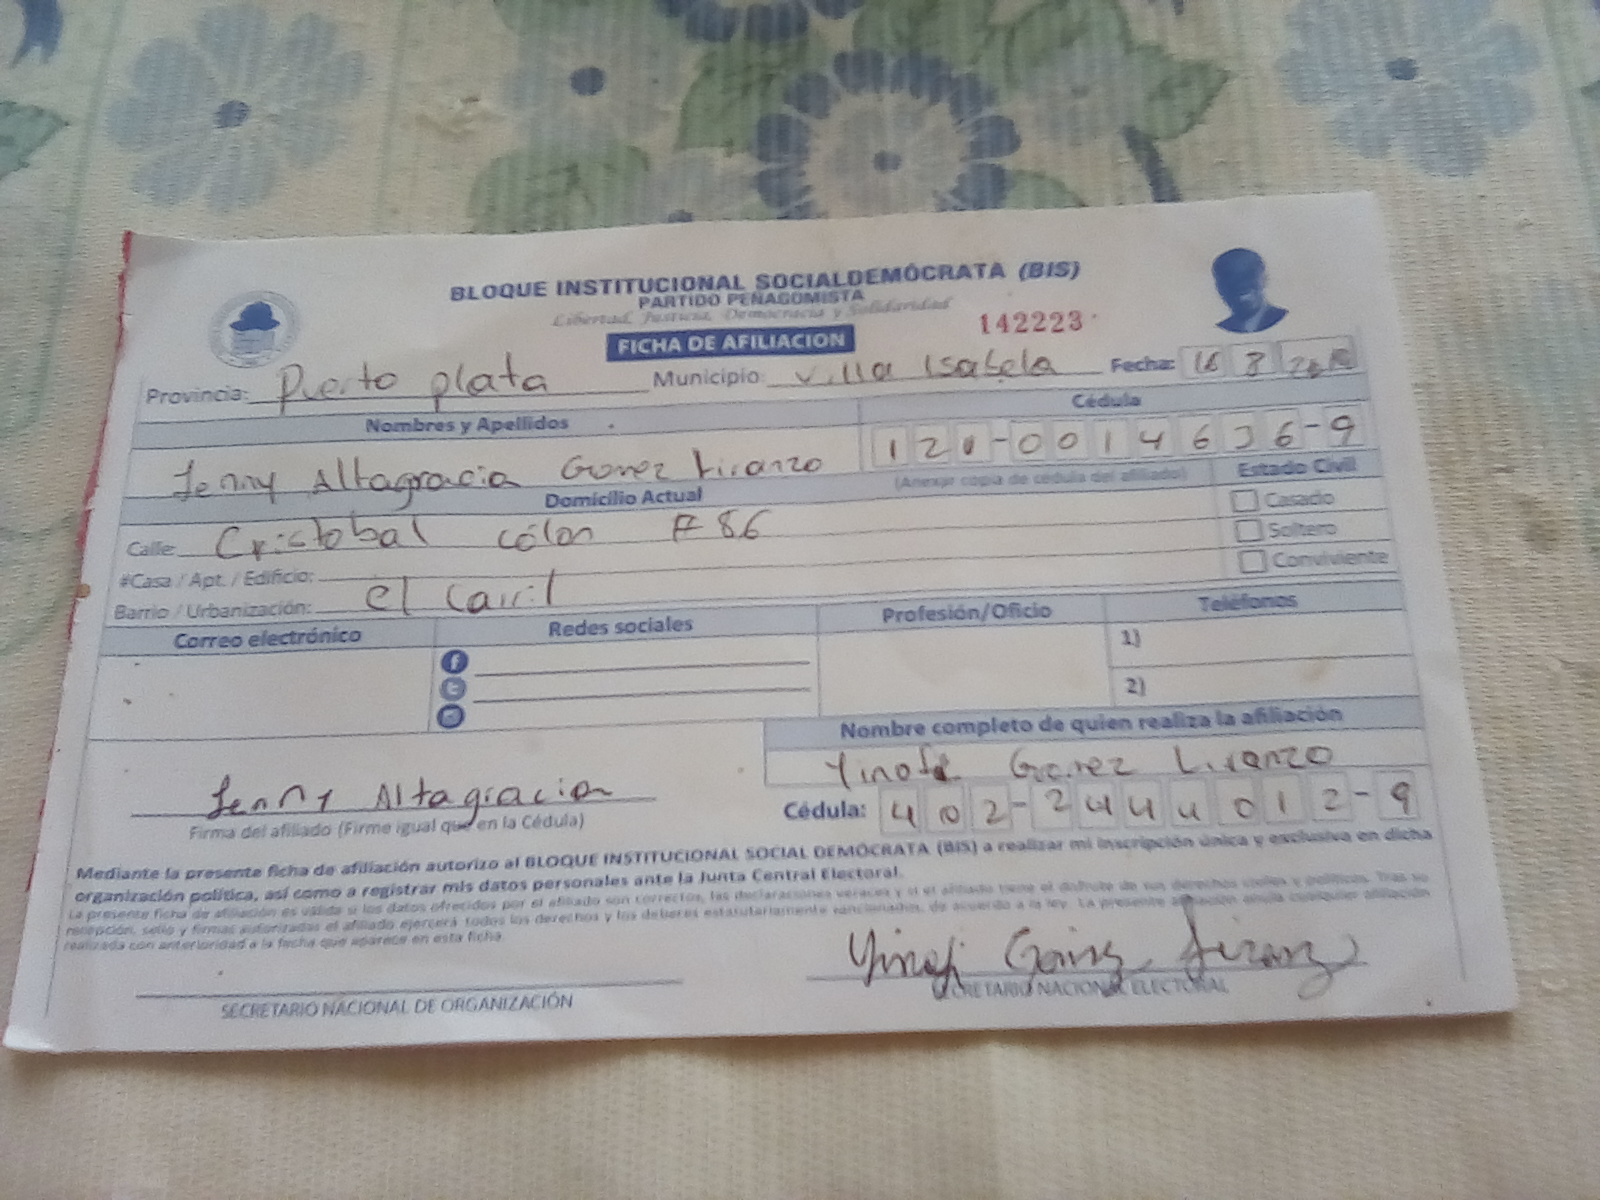 BLOQUE INSTITUCIONAL SOCIALDEMÓCRATA (BIS)
PARTIDO PEÑAGOMISTA
Libertad, Justicia, Democracia y Solidaridad
142223
FICHA DE AFILIACION
Provincia: Puerto plata Municipio: Villa Isabela Fecha:
Nombres y Apellidos Cédula
Jenny Altagracia Gomez Liranzo 121-0014636-9
(Anexar copia de cédula del afiliado) Estado Civil
Domicilio Actual
Casado
Calle: Cristobal cólon #86 Soltero
#Casa / Apt. / Edificio: Conviviente
Barrio / Urbanización: el
Correo electrónico Redes sociales Profesión/Oficio Teléfonos
1)
2)
Nombre completo de quien realiza la afiliación
Gomez Liranzo
Jenny Altagracia
Cédula: 402-2444012-9
Firma del afiliado (Firme igual que en la Cédula)
Mediante la presente ficha de afiliación autorizo al BLOQUE INSTITUCIONAL SOCIAL DEMÓCRATA (BIS) a realizar mi inscripción única y exclusiva en dicha
organización política, así como a registrar mis datos personales ante la Junta Central Electoral.
La presente ficha de afiliación es válida si los datos ofrecidos por el afiliado son correctos, las declaraciones veraces y si el afiliado tiene el disfrute de sus derechos civiles y políticos. Tras su
recepción, sello y firmas autorizadas el afiliado ejercerá todos los derechos y los deberes estatutariamente sancionados, de acuerdo a la ley. La presente afiliación anula cualquier afiliación
realizada con anterioridad a la fecha que aparece en esta ficha.
SECRETARIO NACIONAL DE ORGANIZACIÓN
SECRETARIO NACIONAL ELECTORAL